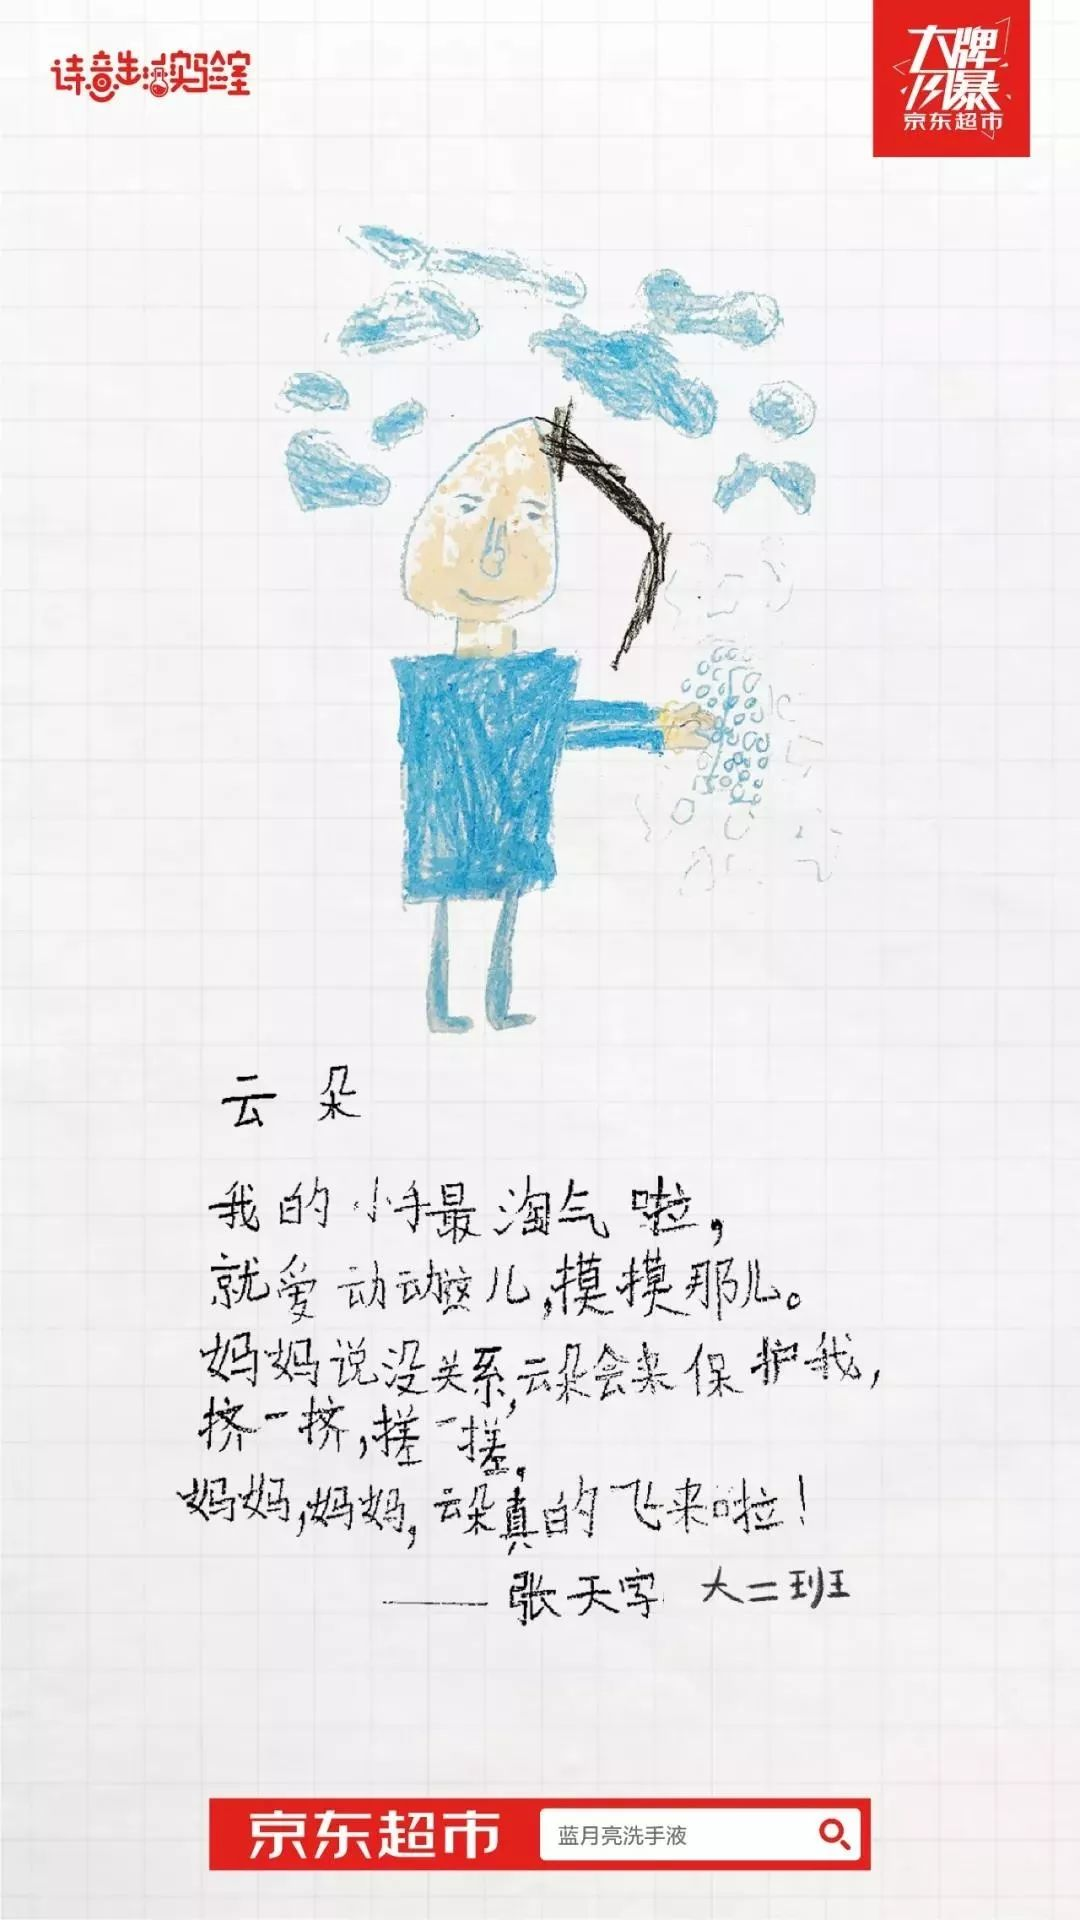 诗意生活实验室
大牌风暴
京东超市
云朵
我的小手最淘气啦，
就爱动动这儿，摸摸那儿。
妈妈说没关系，云朵会来保护我，
挤一挤，搓一搓，
妈妈，妈妈，云朵真的飞来啦！
——张天字 大二班
京东超市 蓝月亮洗手液